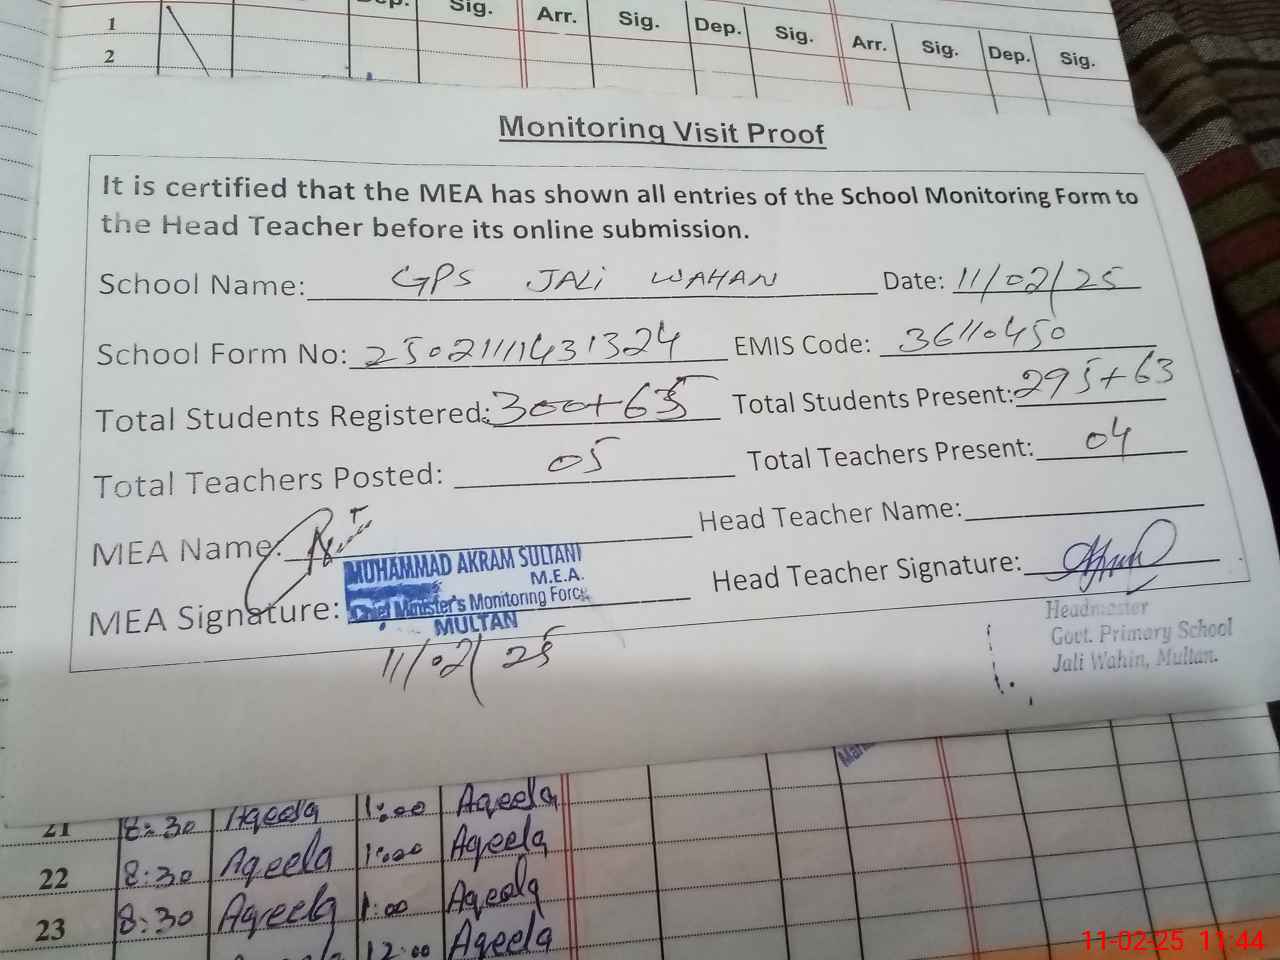 1
2
Sig. Arr. Sig. Dep. Sig. Arr. Sig. Dep. Sig.
Monitoring Visit Proof
It is certified that the MEA has shown all entries of the School Monitoring Form to
the Head Teacher before its online submission.
School Name: GPS JALi WAHAN Date: 11/02/25
School Form No: 2502111431324 EMIS Code: 36110450
Total Students Registered: 300+63 Total Students Present: 295+63
Total Teachers Posted: 05 Total Teachers Present: 04
MEA Name: Head Teacher Name:
MEA Signature: Head Teacher Signature:
MUHAMMAD AKRAM SULTANI
M.E.A.
Chief Minister's Monitoring Force
MULTAN
11/02/25
Headmaster
Govt. Primary School
Jali Wahin, Multan.
21 8:30 Aqeela 1:00 Aqeela
22 8:30 Aqeela 1:00 Aqeela
23 8:30 Aqeela 1:00 Aqeela
12:00 Aqeela
11-02-25 11:44